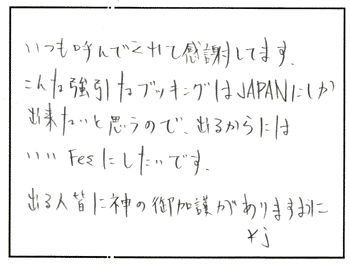 いつも呼んでくれて感謝してます。
こんな強引なブッキングはJAPANにしか
出来ないと思うので、出るからには
いい Fesにしたいです。
出る人皆に神の御加護がありますように
¥j